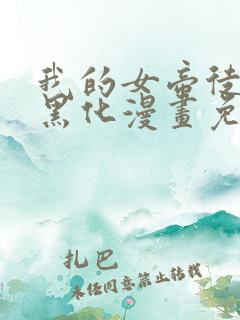 我的女帝徒
黑化漫畫免
扎巴
未经同意禁止转载